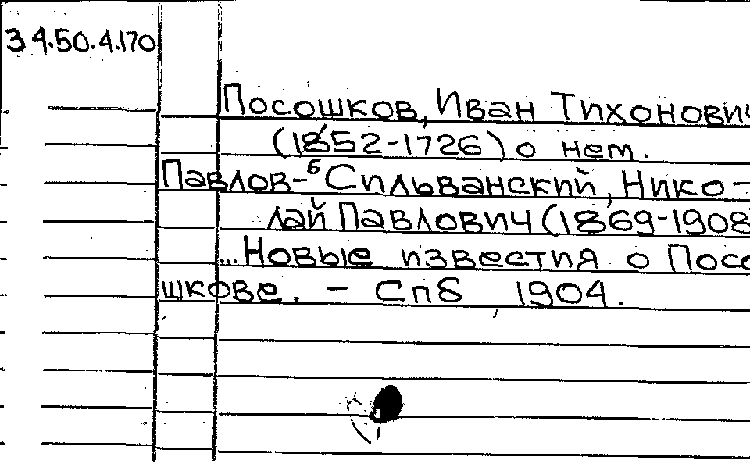 34.50.4.170
Посошков, Иван Тихонович
(1852-1726) о нем.
Павлов-Сильванский, Нико-
лай Павлович (1869-1908
...Новые известия о Посо
шкове. - Спб 1904.